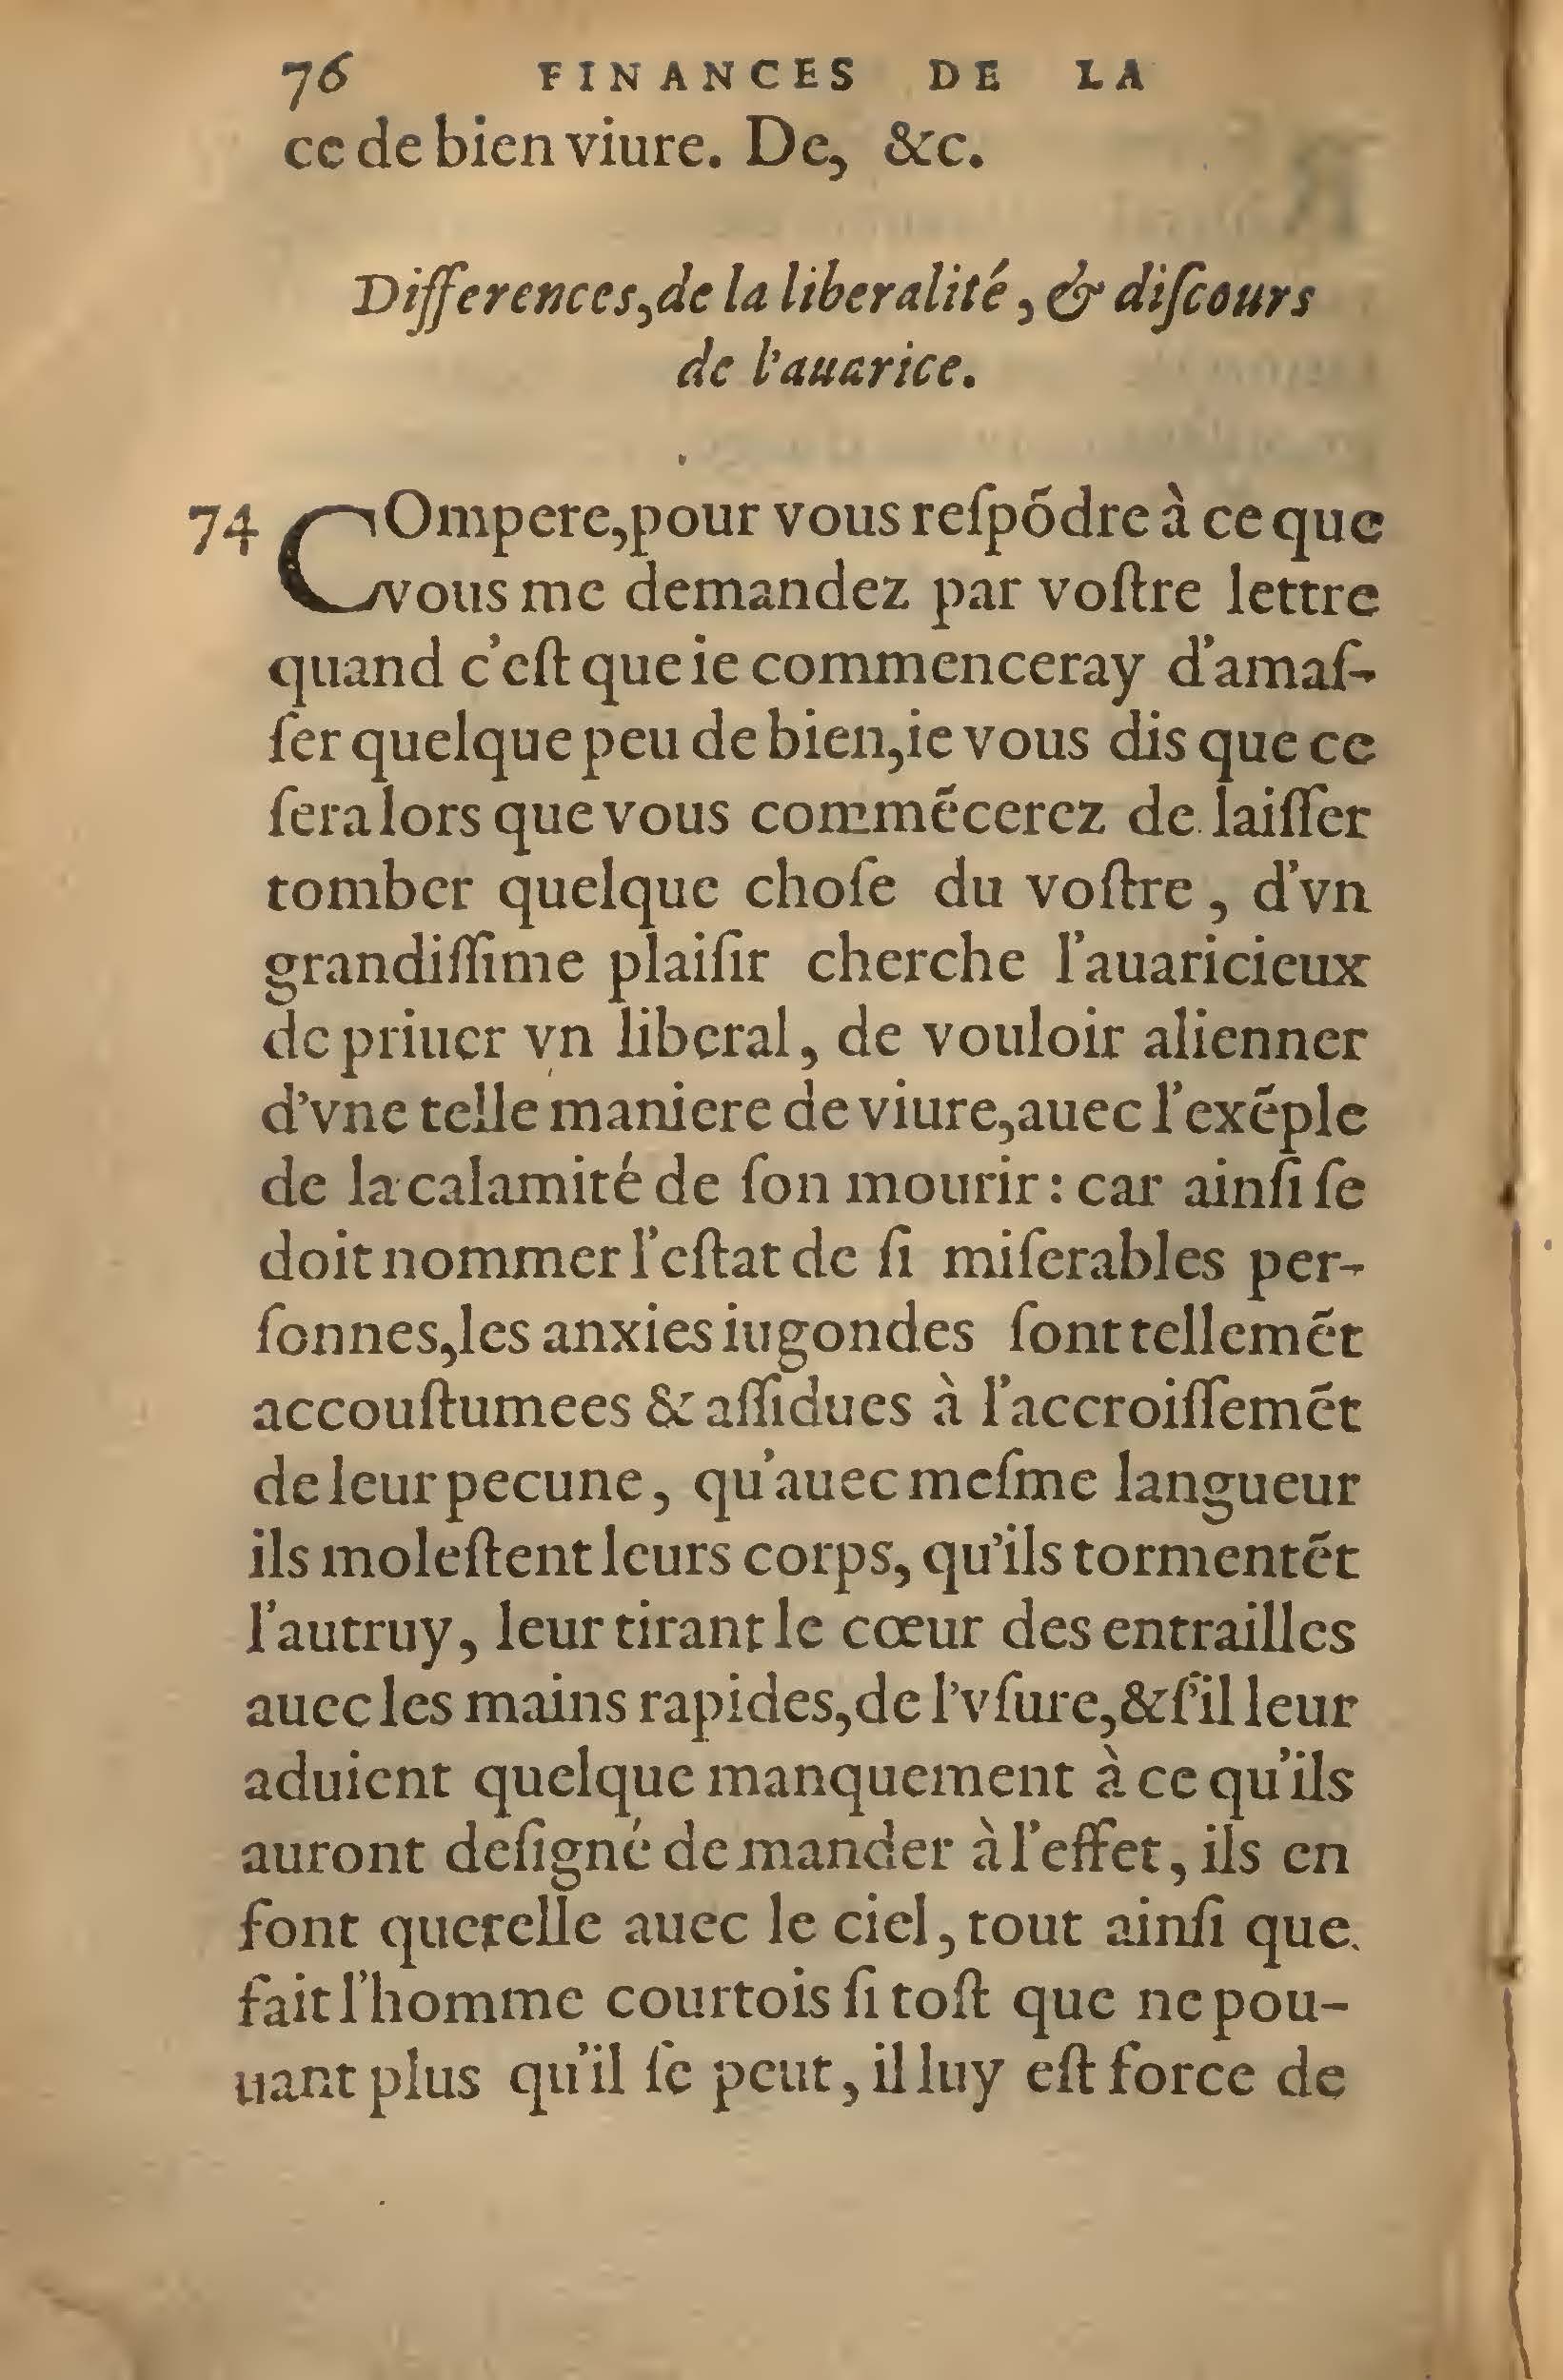 76 FINANCES DE LA
ce de bien viure. De, &c.
Differences, de la liberalité, & diſcours
de l'auarice.
74 COmpere, pour vous reſpõdre à ce que
vous me demandez par voſtre lettre
quand c'eſt que ie commenceray d'amaſ-
ſer quelque peu de bien, ie vous dis que ce
ſera lors que vous commẽcerez de laiſſer
tomber quelque choſe du voſtre, d'vn
grandiſſime plaiſir cherche l'auaricieux
de priuer vn liberal, de vouloir alienner
d'vne telle maniere de viure, auec l'exẽple
de la calamité de ſon mourir: car ainſi ſe
doit nommer l'eſtat de ſi miſerables per-
ſonnes, les anxies iugondes ſont tellemẽt
accouſtumees & aſſidues à l'accroiſſemẽt
de leur pecune, qu'auec meſme langueur
ils moleſtent leurs corps, qu'ils tormentẽt
l'autruy, leur tirant le cœur des entrailles
auec les mains rapides, de l'vſure, & ſ'il leur
aduient quelque manquement à ce qu'ils
auront deſigné de mander à l'effet, ils en
font querelle auec le ciel, tout ainſi que
fait l'homme courtois ſi toſt que ne pou-
uant plus qu'il ſe peut, il luy eſt force de